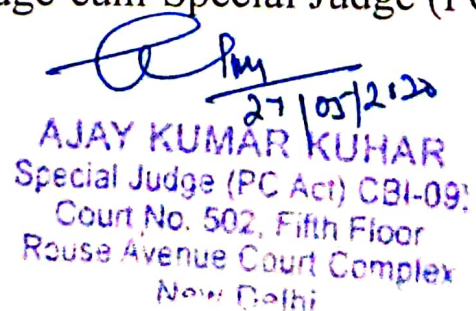 dge-cum-Special Judge (P
27/05/2020
AJAY KUMAR KUHAR
Special Judge (PC Act) CBI-09
Court No. 502, Fifth Floor
Rouse Avenue Court Complex
New Delhi